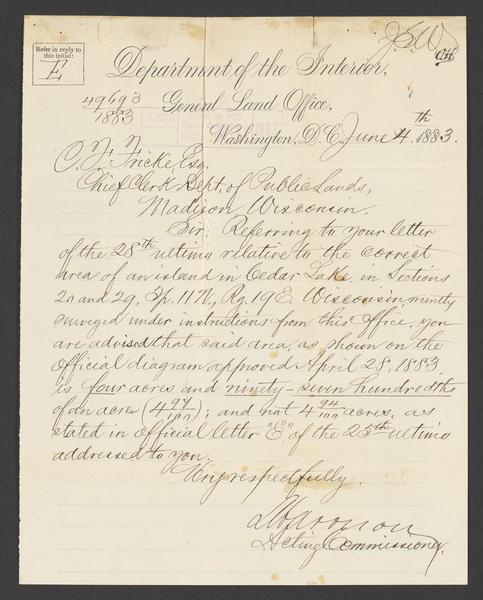 Refer in reply to
this initial:
E
J.S.W.
Department of the Interior,
49693
1883
General Land Office,
Washington, D.C. June 4th 1883.
Esq.
Chief Clerk, Dept. of Public Lands,
Madison, Wisconsin.
Sir: Referring to your letter
of the 28th ultimo relative to the correct
area of an island in Cedar Lake, in Sections
20 and 29, Tp. 11 N., Rg. 19 E. Wisconsin, recently
surveyed under instructions from this Office, you
are advised that said area, as shown on the
official diagram approved April 28, 1883,
is four acres and ninety-seven hundredths
of an acre (4 97/100); and not 4 94/100 acres, as
stated in official letter "E" of the 25th ultimo
addressed to you.
Very respectfully.
Harrison
Acting Commissioner.